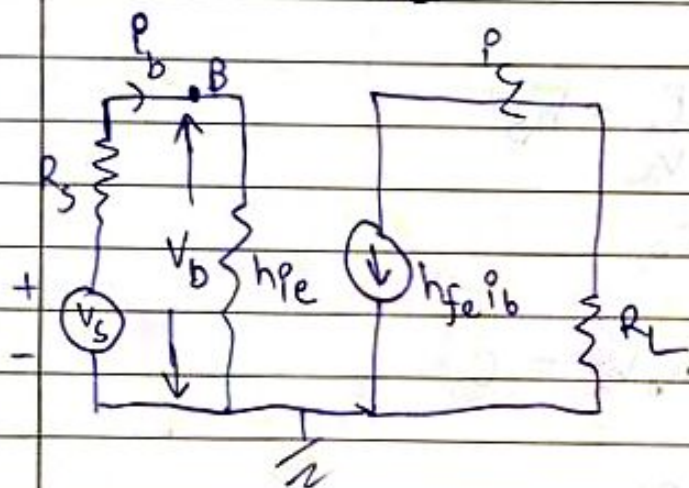 i_b
B
i
R_s
V_b
h_ie
h_fe i_b
R_L
+
V_s
-